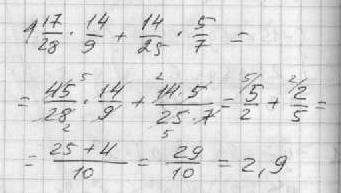 1 17/28 · 14/9 + 14/25 · 5/7 =
= 45⁵/28₂ · 14/9 + ²14·5/25₅·7 = ⁵/5/2 + ²/2/5 =
= 25+4/10 = 29/10 = 2,9